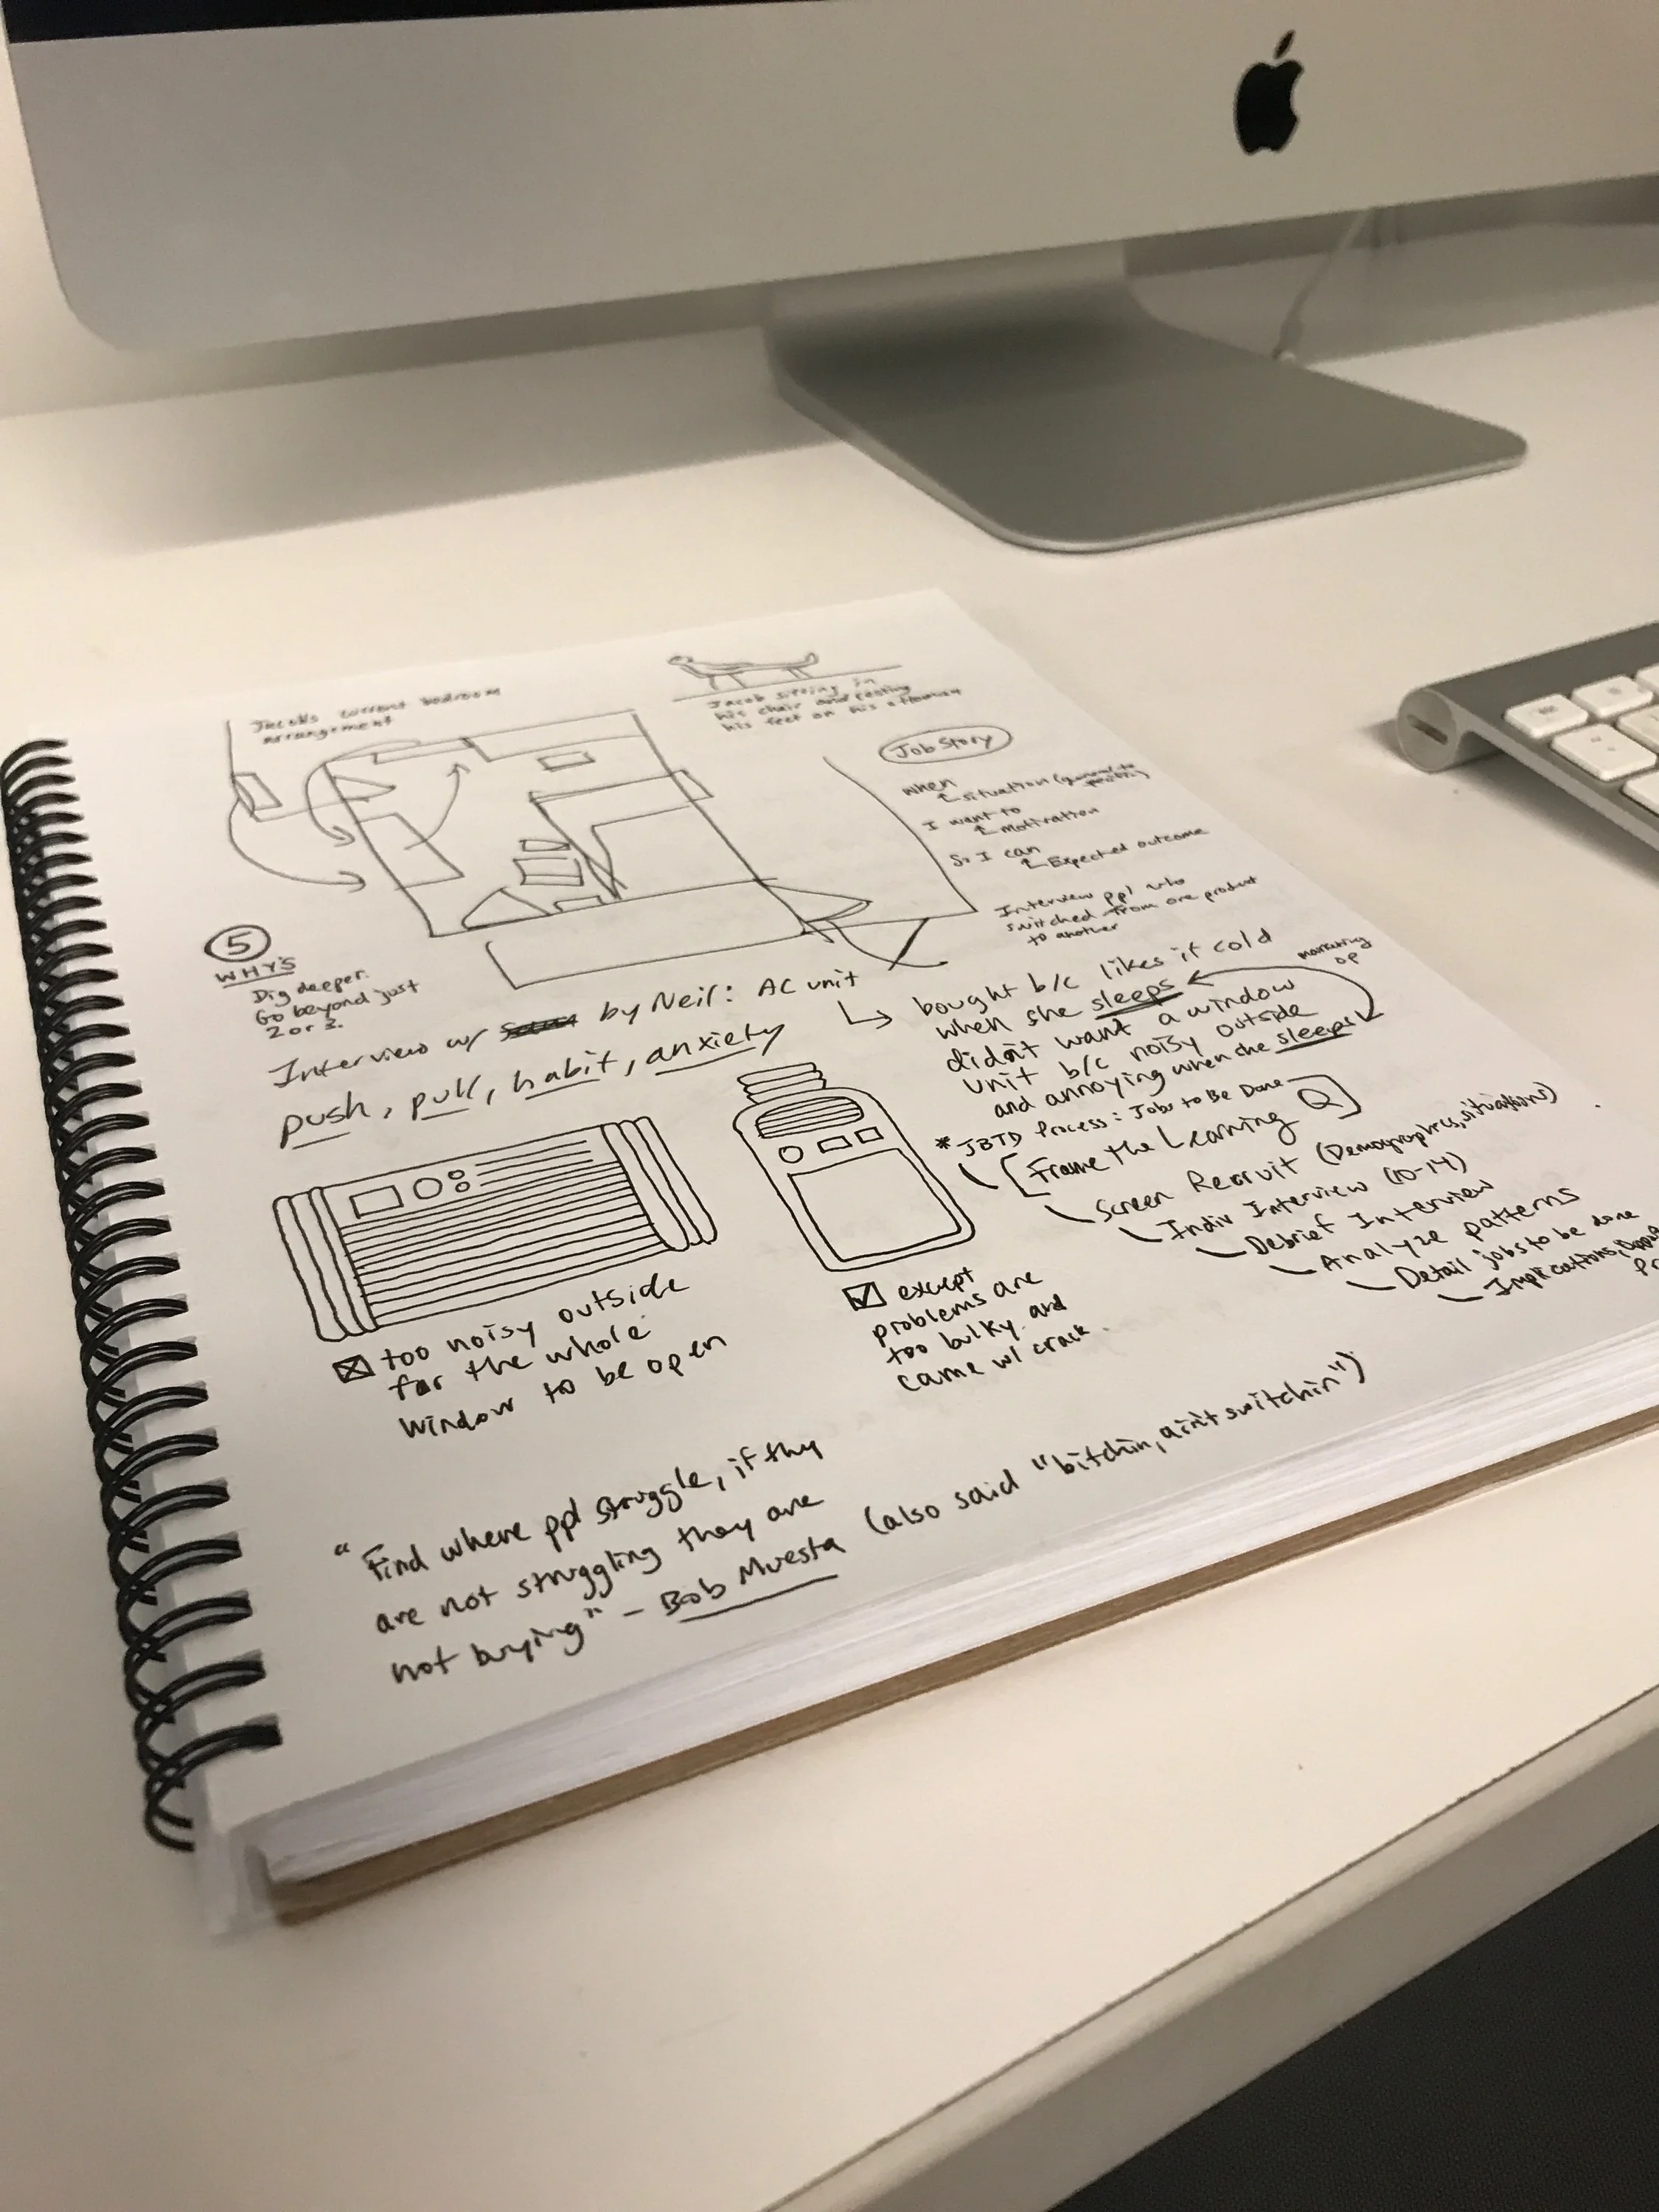 Jacob's current bedroom
arrangement
Jacob sitting in
his chair and resting
his feet on his ottoman
Job Story
when
situation
I want to
Motivation
So I can
Expected outcome
Interview ppl who
switched from one product
to another
5
WHY'S
Dig deeper.
Go beyond just
2 or 3.
Interview w/ by Neil: AC unit
push, pull, habit, anxiety
bought b/c likes it cold
when she sleeps
didn't want a window
unit b/c noisy outside
and annoying when she sleeps
marketing
op
* JBTD Process: Jobs to Be Done
Frame the Learning Q
Screen Recruit (Demographics, situations)
Indiv Interview (10-14)
Debrief Interview
Analyze patterns
Detail jobs to be done
Implications,
too noisy outside
for the whole
window to be open
except
problems are
too bulky and
came w/ crack.
"Find where ppl struggle, if thy
are not struggling they are
not buying" - Bob Muesta (also said "bitchin, ain't switchin")